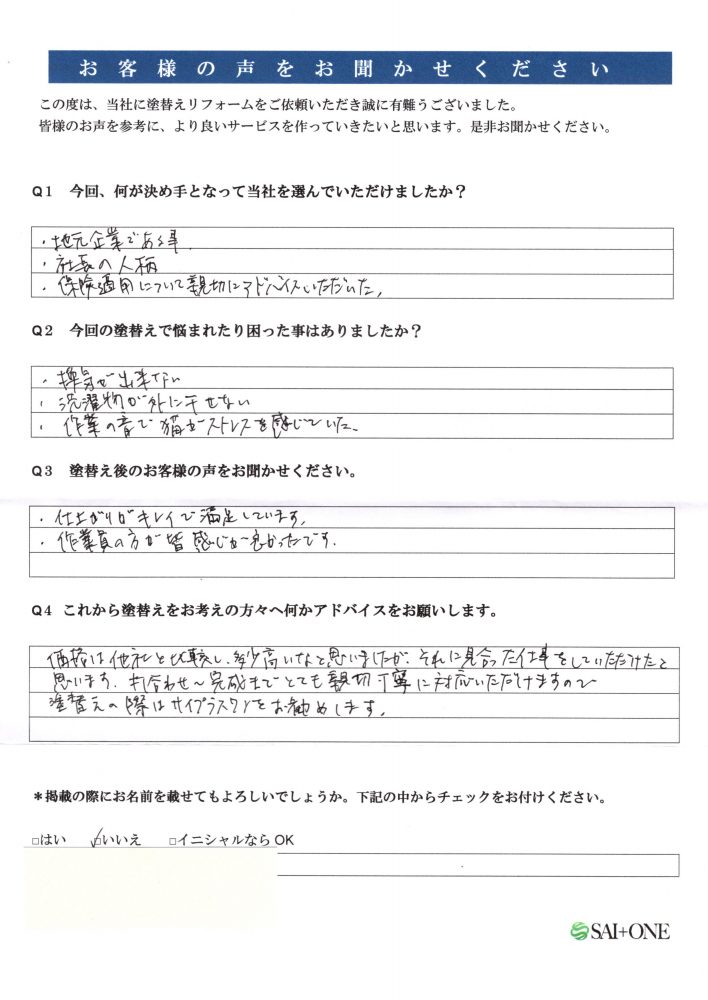 お客様の声をお聞かせください
この度は、当社に塗替えリフォームをご依頼いただき誠に有難うございました。
皆様のお声を参考に、より良いサービスを作っていきたいと思います。是非お聞かせください。
Q1 今回、何が決め手となって当社を選んでいただけましたか？
・地元企業である事。
・社長の人柄
・保険適用について親切にアドバイスいただいた。
Q2 今回の塗替えで悩まれたり困った事はありましたか？
・換気が出来ない
・洗濯物が外に干せない
・作業の音で猫がストレスを感じていた。
Q3 塗替え後のお客様の声をお聞かせください。
・仕上がりがキレイで満足しています。
・作業員の方が皆感じが良かったです。
Q4 これから塗替えをお考えの方々へ何かアドバイスをお願いします。
価格は他社と比較し、多少高いなと思いましたが、それに見合った仕事をしていただけたと
思います。打合わせ〜完成までとても親切丁寧に対応いただけますので
塗替えの際はサイプラスワンをお勧めします。
＊掲載の際にお名前を載せてもよろしいでしょうか。下記の中からチェックをお付けください。
□はい ☑いいえ □イニシャルならOK
SAI+ONE